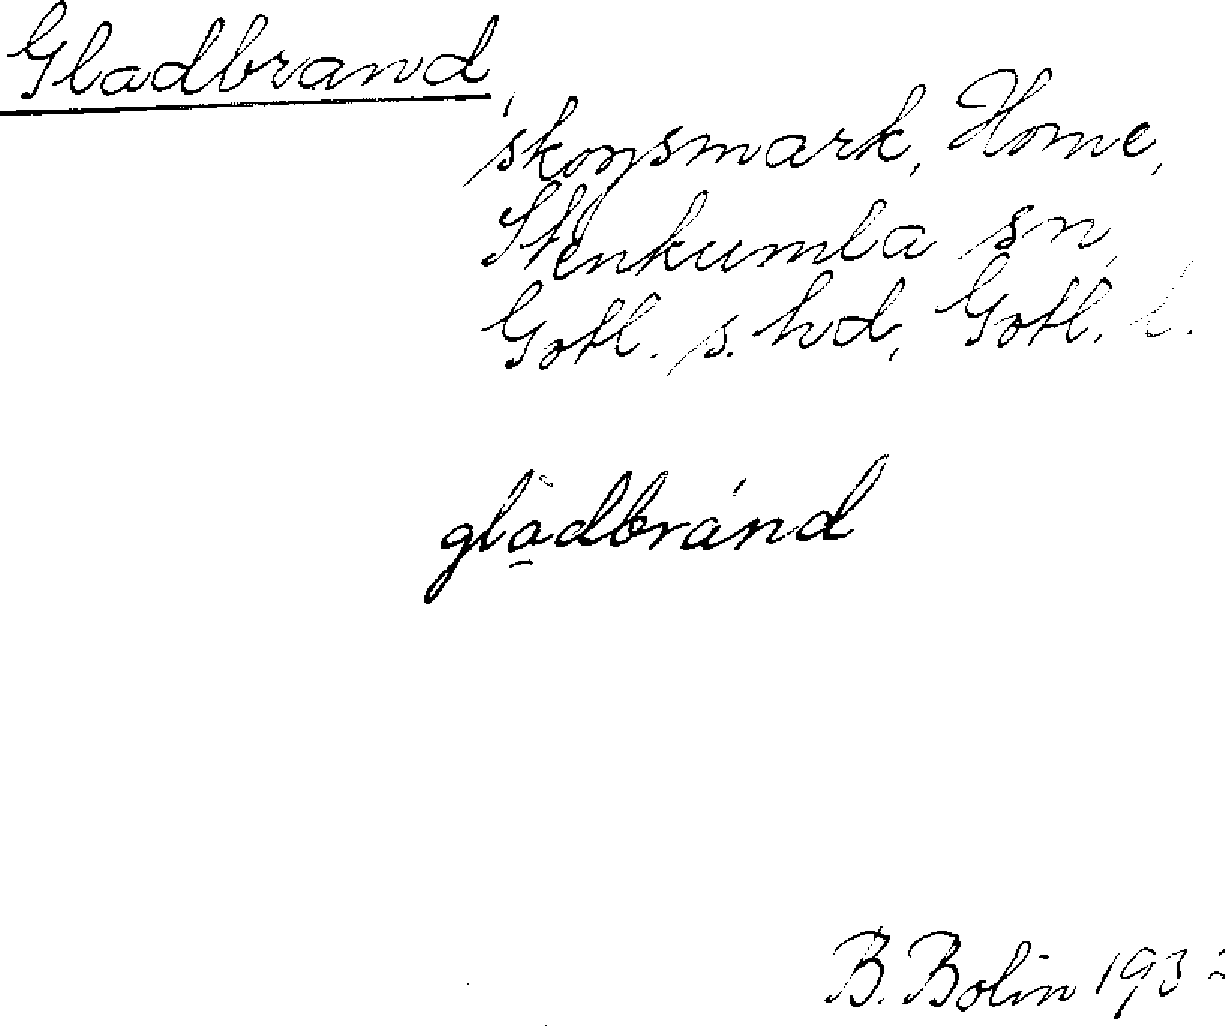 Gladbrand,
skogsmark, Home,
Stenkumla sn,
Gotl. s. hd, Gotl. l.
gladbránd
B. Bolin 1932